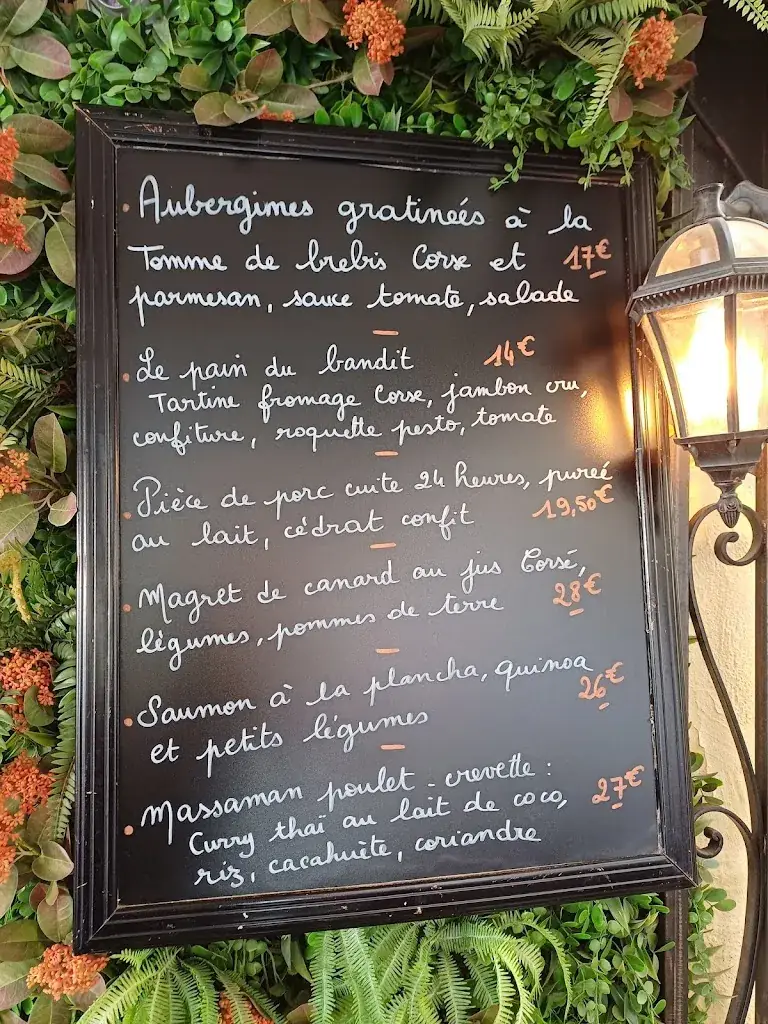 . Aubergines gratinées à la
Tomme de brebis Corse et 17€
parmesan, sauce tomate, salade
. Le pain du bandit 14€
Tartine fromage Corse, jambon cru,
confiture, roquette pesto, tomate
. Pièce de porc cuite 24 heures, pureé
au lait, cédrat confit 19,50€
. Magret de canard au jus Corsé,
légumes, pommes de terre 28€
. Saumon à la plancha, quinoa
et petits légumes 26€
. Massaman poulet - crevette :
Curry thaï au lait de coco, 27€
riz, cacahuète, coriandre